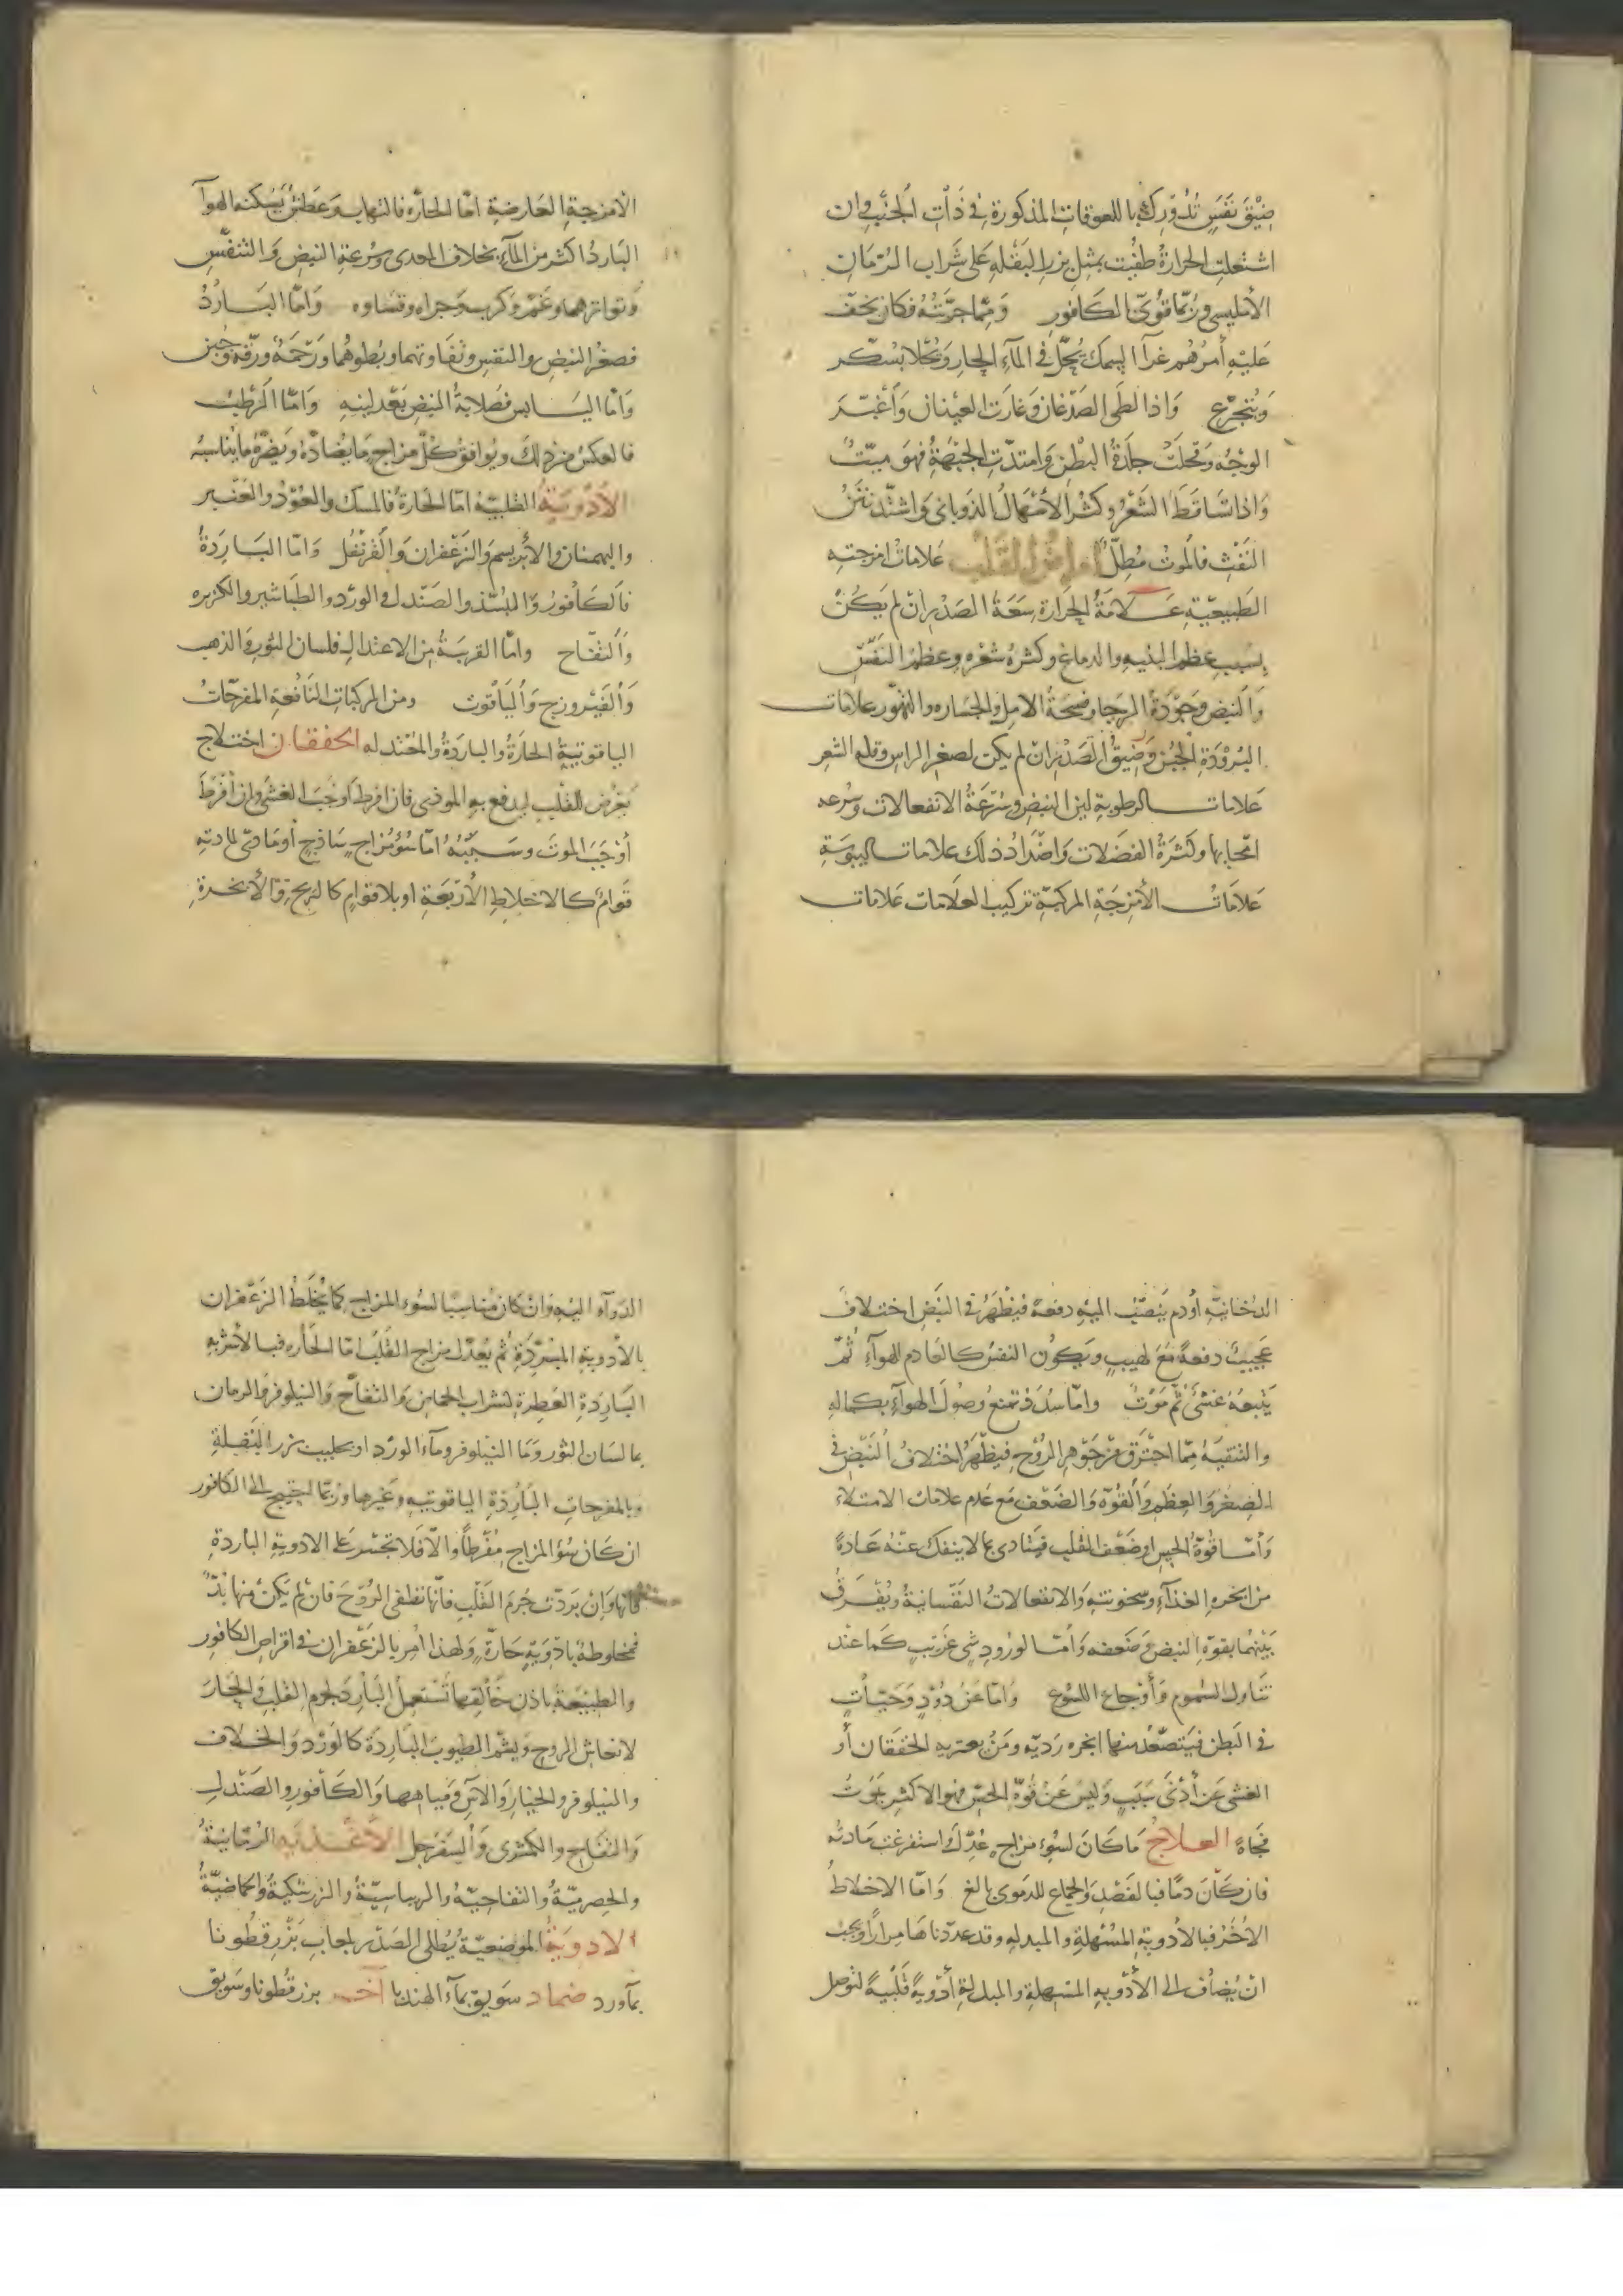 ضِيْقَ نَفَسٍ تُدُورِكَ باللعوقات المذكورة في ذَاتِ الجَنْبِ وان
اشتعلت الحرارة طُفِيت بمثل بزر البَقْلِه عَلى شراب الرُمّان
الأمليسي ورُبّما قُوِّي بالكافور وممّا جرّبته فكان يخفّ
عليه أمرُهُم غرآ السمك يُحَلّ في المآءِ الحار ويُحَلّا بسُكّر
ويُتجرّع وَاذا لطى الصَدْغان وَغارت العينان وَأغْبَرَّ
الوجْه وَقحلَت جلدَةُ البَطْنِ وَامتدّت الجَبْهَةُ فهوَ ميّتٌ
وَاذا تساقطَ الشَعْرُ وكثر الأسْهَالُ الذوباني وَاشتدّ نَتَنُ
النَفْثِ فالموتُ مُطِلٌّ أمراضُ القَلْبِ علاماتُ امزجته
الطَبيعيّةِ عَلامَةُ الحرَارة سَعَةُ الصَدْر ان لم يَكُنْ
بسببِ عظم البنيه والدماغ وكثرة شعْره وعظمُ النَفَسِ
وَالنبض وَجَوْدَةُ الرجا وفسحَةُ الامل والجسَاره والتهوّر علامات
البُرُوْدَةِ الجُبْن وَضيقُ الصَدْر ان لم يكن لصغر الراس وقلة الشعر
عَلامات الرطوبة لين النبض وسُرْعَةُ الانفعالات وسُرعه
امّحايها وكَثرَةُ الفضَلات وَاضْدَادُ ذلك علامات اليبُوسَةِ
عَلامَاتُ الأمْزِجَةِ المركبّة تركيب العلامات عَلامات
الأمْزجة العَارِضَةِ امّا الحارّه فالتهاب وعَطش يُسَكنه الهوآ
البَاردُ اكثر من المآء بخلاف المعدى وسُرعة النبض وَالتنفّسِ
وتواترهما وغم وكرب وجراه وقسَاوه وَامّا البَاردُ
فصغُر النبض والنفس وتفَاوتهما وبُطوهُما ورَحمَة ورقّة وجُبن
وَامّا اليَابس فصَلابةُ النبض بَعْد لينه وَامّا الرَطبُ
فالعكسُ من ذلكَ ويُوافق كلّ مزاج مَا يُضادّه ويَضرّه ما يُناسبُه
الأدْويَةُ القلبيّة امّا الحَارةُ فالمسك والعُوْد والعَنْبر
والبهمنان والأبْريسم وَالزعْفران وَالقرنْفُل وَامّا البَاردَةُ
فَالكَافورُ وَالبُسّذ والصَندل والورْد والطبَاشير والكزبره
وَالتُفّاح وامّا القريبَةُ من الاعتدال فلسان الثور والذهب
وَالفَيْروزج وَاليَاقوت ومن المركبات النَافعَةِ المفرّحاتُ
الياقوتيَةُ الحارَةُ والبَاردَةُ والمعتدله الخفقان اختلاج
يَعْرض للقلب ليدفع به الموذى فان افرط اوجبَ الغشي وان أفرَطَ
أوْجَبَ الموت وسَبَبُهُ امّا سُوْمزاج سَاذج أومَادّي لمادته
قوامٌ كالاخلاطِ الأرْبَعَةِ اوبلاقوام كالريح وَالأبخرةِ
الدُخانيّة أوْدم يَنْصَبّ اليه دفعة فيَظْهَرُ في النَبض اختلافٌ
عَجيبٌ دفعةً مَعَ لهيبٍ ويَكون النفسُ كالعَادم للهوآءِ ثُمّ
يَتْبعُهُ غشيٌ ثُمّ مَوْتٌ وامّا سُدَدٌ تمنعُ وصُولَ الهوآءِ بكماله
والتنقيَهُ ممّا احْترقَ مِنْ جَوْهرِ الرُوْح فيظْهَرُ اختلافُ النَبْض في
الصِغَرِ وَالعِظَمِ وَالقُوّه وَالضَعْفِ مَع عَدم علامات الامتلاء
وَأمّا قوّةُ الحس اوضَعْف القلب فيتأذى بما لاينفك عَنْهُ عَادةً
من ابخره الغذآء وسخونته وَالانفعالاتُ النفسَانيةُ ويُفْرَقُ
بَيْنهُمَا بقوّة النبض وَضعفه وَأمّا لورُود شئ غرَيب كَمَا عند
تناول السُموم وَأوْجَاع اللسُوع وَامّا عَن دُوْدٍ وَحَيّاتٍ
في البَطن فيَتصَعّدُ منها ابخره رَديّه ومَنْ يعتريه الخفقان أو
الغشي عَن أدْنَى سَبَبٍ وَليسَ عَنْ قُوّة الحسّ فهو الاكثر يَمُوْتُ
فجأةً العلاجُ مَا كانَ لسُوء مزاج عُدِّلَ وَاستفرغت مَادتُه
فان كَانَ دمًا فبا لفَصْدِ وَالحجامَة للدموي بالغ وَامّا الاخلاطُ
الأخَرُ فبالأدويةِ المُسْهِلَةِ والمبدله وقد عددناهَا مِرَارًا ويجبُ
انْ يُضافَ الى الأدْويهِ المسهلةِ والمبدلةِ أدْويةً قلْبيةً لتوصل
الدوآء اليه وَانْ كان مُناسبًا لسُوء المزاج كما يُخلَطُ الزعْفران
بالأدويةِ المُبَرّدَةِ ثم يُعَدّل مزاج القَلْب امّا الحَارّه فبالأشربه
البَاردَةِ العَطِرةِ كشراب الحماض والتفاح والنيلوفر والرمان
بما لسَان الثور وَمَا النيلوفر ومآء الورْد اوبحليب بزر البَقْلةِ
وبالمفرحات البَارِدَةِ الياقوتيه وغيرهَا ورُبّما احتيج الى الكافور
ان كَان سُوْ المزاج مُفْرطًا وَالّا فَلا تجسُر عَلى الادويةِ البَاردةِ
فانها وَإنْ برَدّت جُرمَ القَلْب فانّها تطفى الرُوْحَ فانْ لَم يَكنْ منها بُدّ
فمخلوطة بادْويَةٍ حَارّةٍ وَلهذا أُمِر بالزعْفران في اقراص الكافور
والطبيْعةُ باذن خَالقهَا تَسْتعملُ البَاردَ لجرم القلب وَالحَارّ
لانعَاش الروح ويَشُم الطيوبَ البَاردَة كالوَرْد وَالخلاف
والنيلوفر والخيار وَالآس ومياهها وَالكَافور والصَنْدل
وَالتفَاح والكمثرى وَالسَفَرجل الأغْذيَه الرُمّانيةُ
والحِصرميّةُ والتفاحيّةُ والريباسيّةُ والزرشكية والحُمّاضيّةُ
الادويَةُ الموضعيّة يُطلى الصَدْر بلعاب بَزْر قطُونا
بمآورد ضماد سَويق بمآء الهندبا آخر بزر قطونا وسَويق